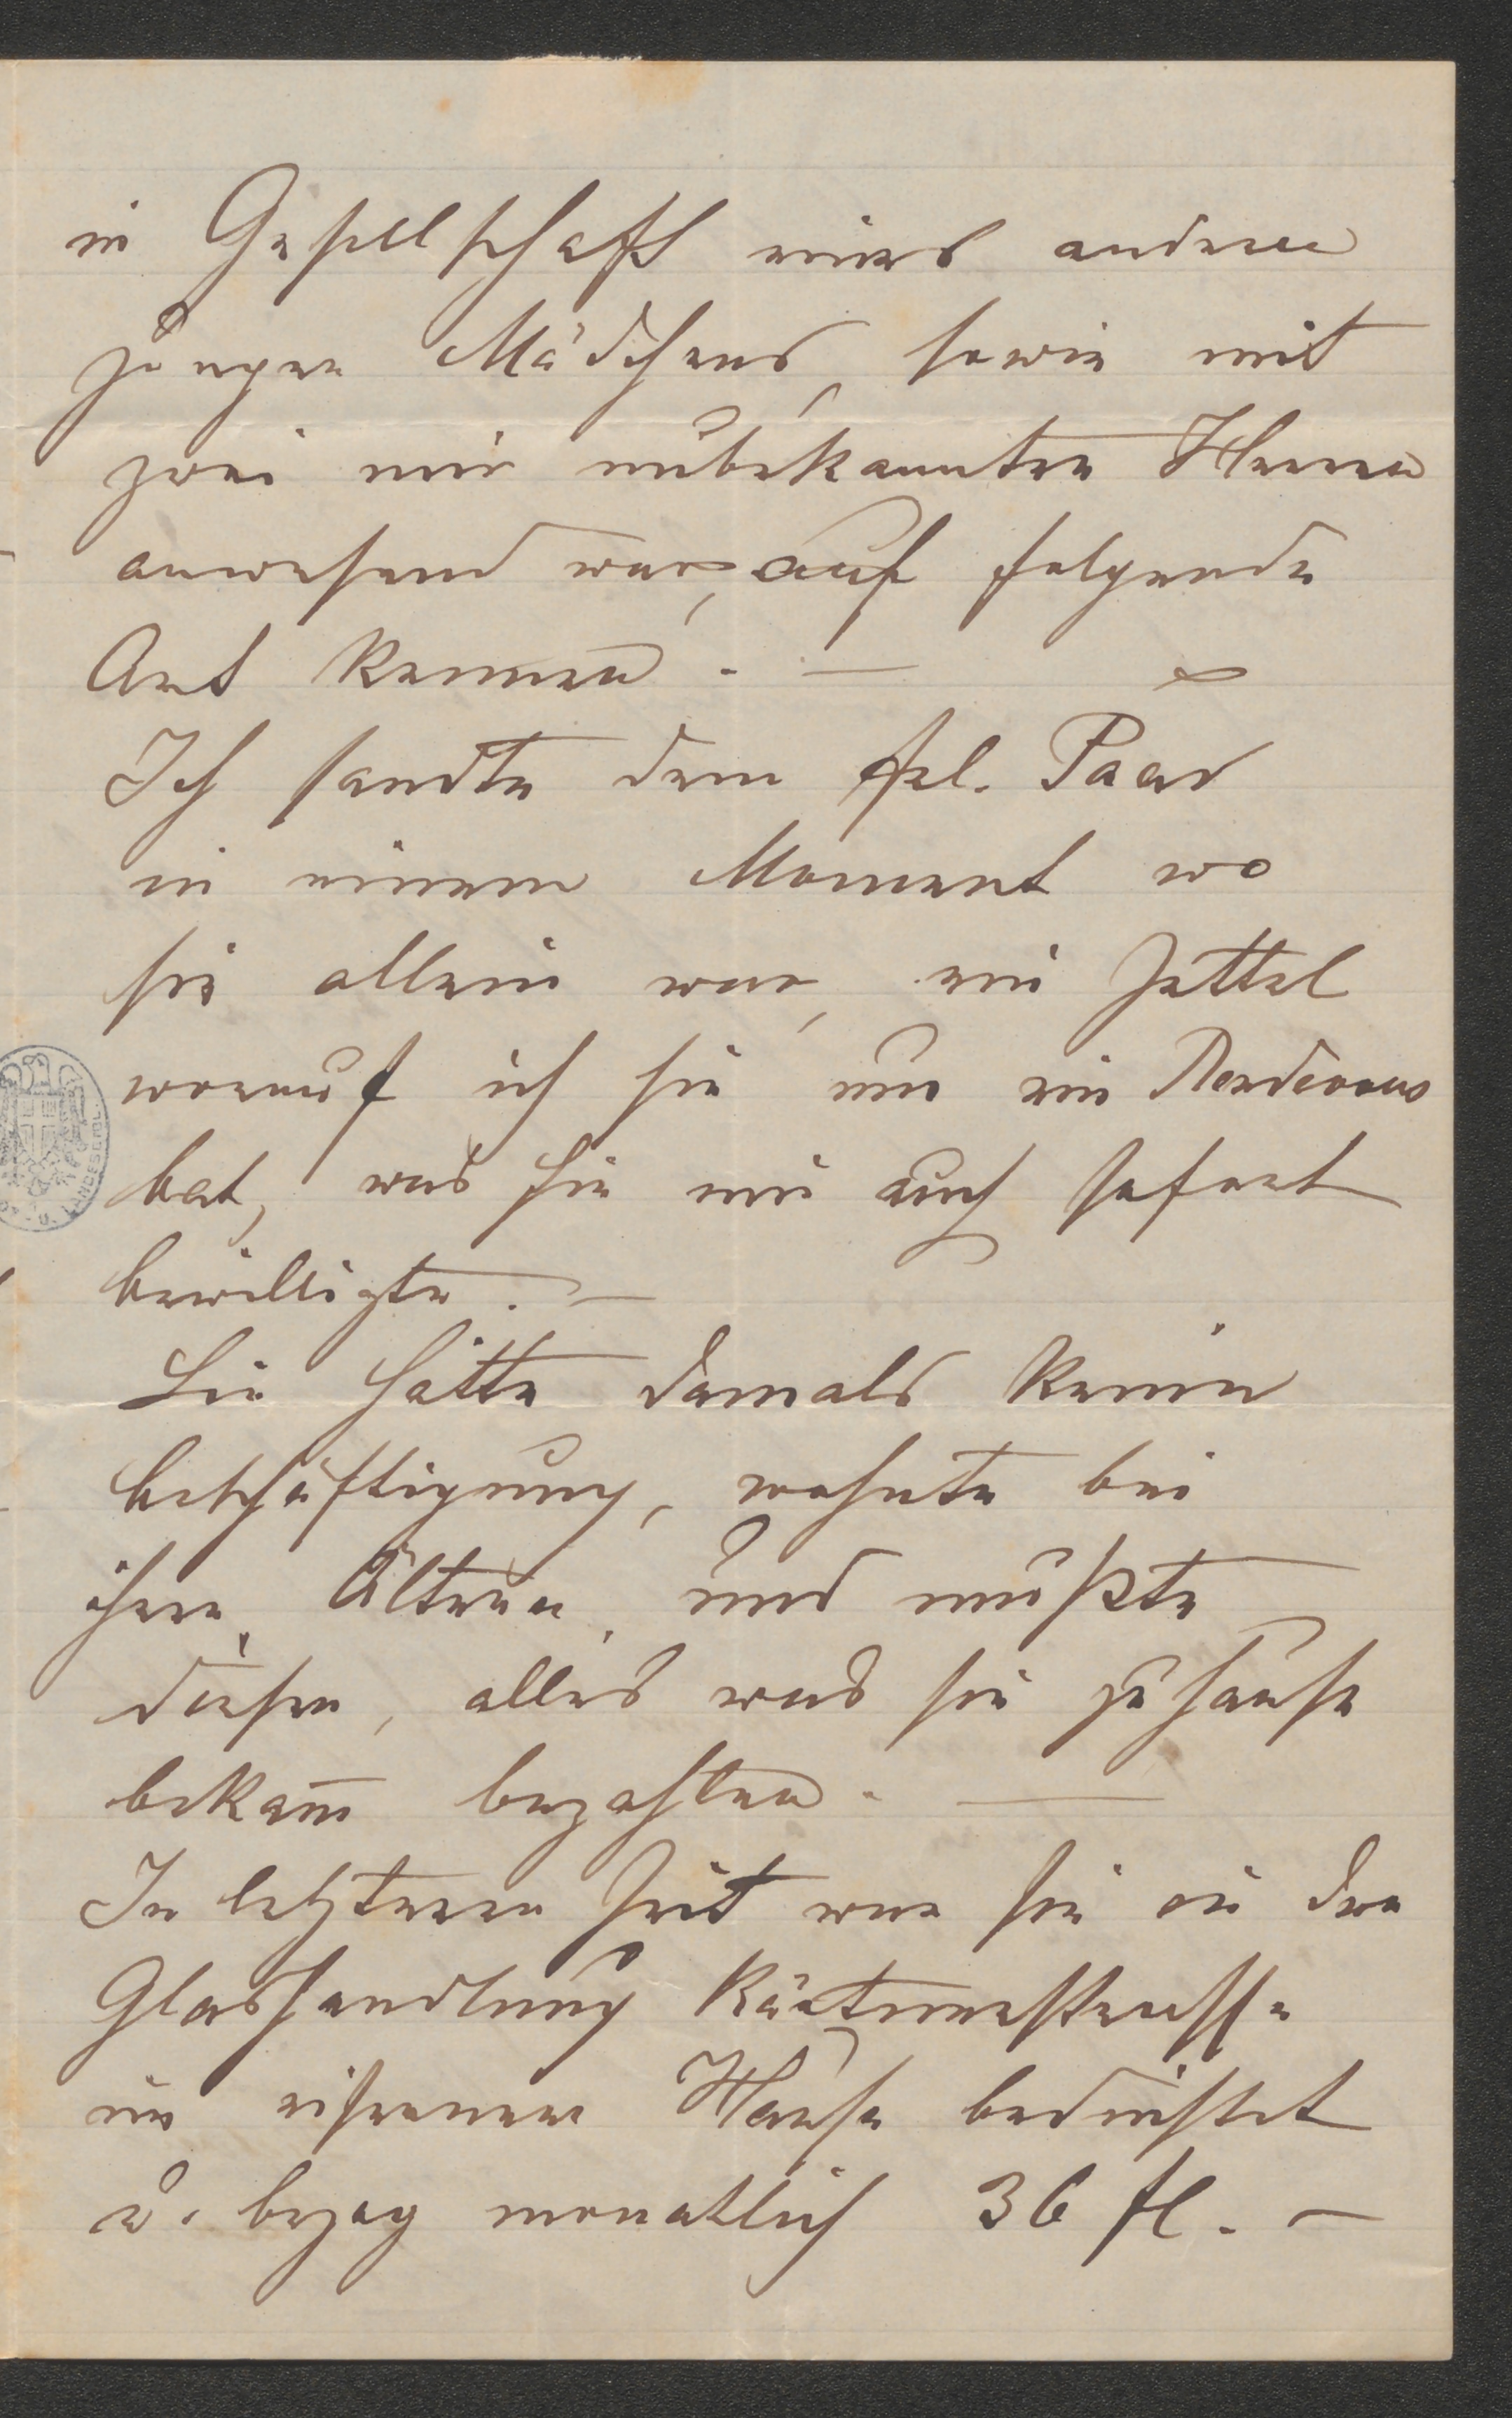 in Gesellschaft eines anderen
jungen Mädchens, sowie mit
zwei mir unbekannten Herren
anwesend war, auf folgende
Art kennen. —
Ich sandte dem frl. Paar
in einem Moment wo
sie allein war, ein Zettel
worauf ich sie um ein Rendevous
bat, was sie mir auch sofort
bewilligte. —
Sie hatte damals keine
beschäftigung, wohnte bei
ihren Ältern, und mußte
diesen, alles was sie zuhause
bekam̄ bezahlen. —
In letzterer Zeit war sie in der
Glashandlung Kärtnerstrasse
im eisernen Hause bedinstet
u. bezog monatlich 36 fl. —